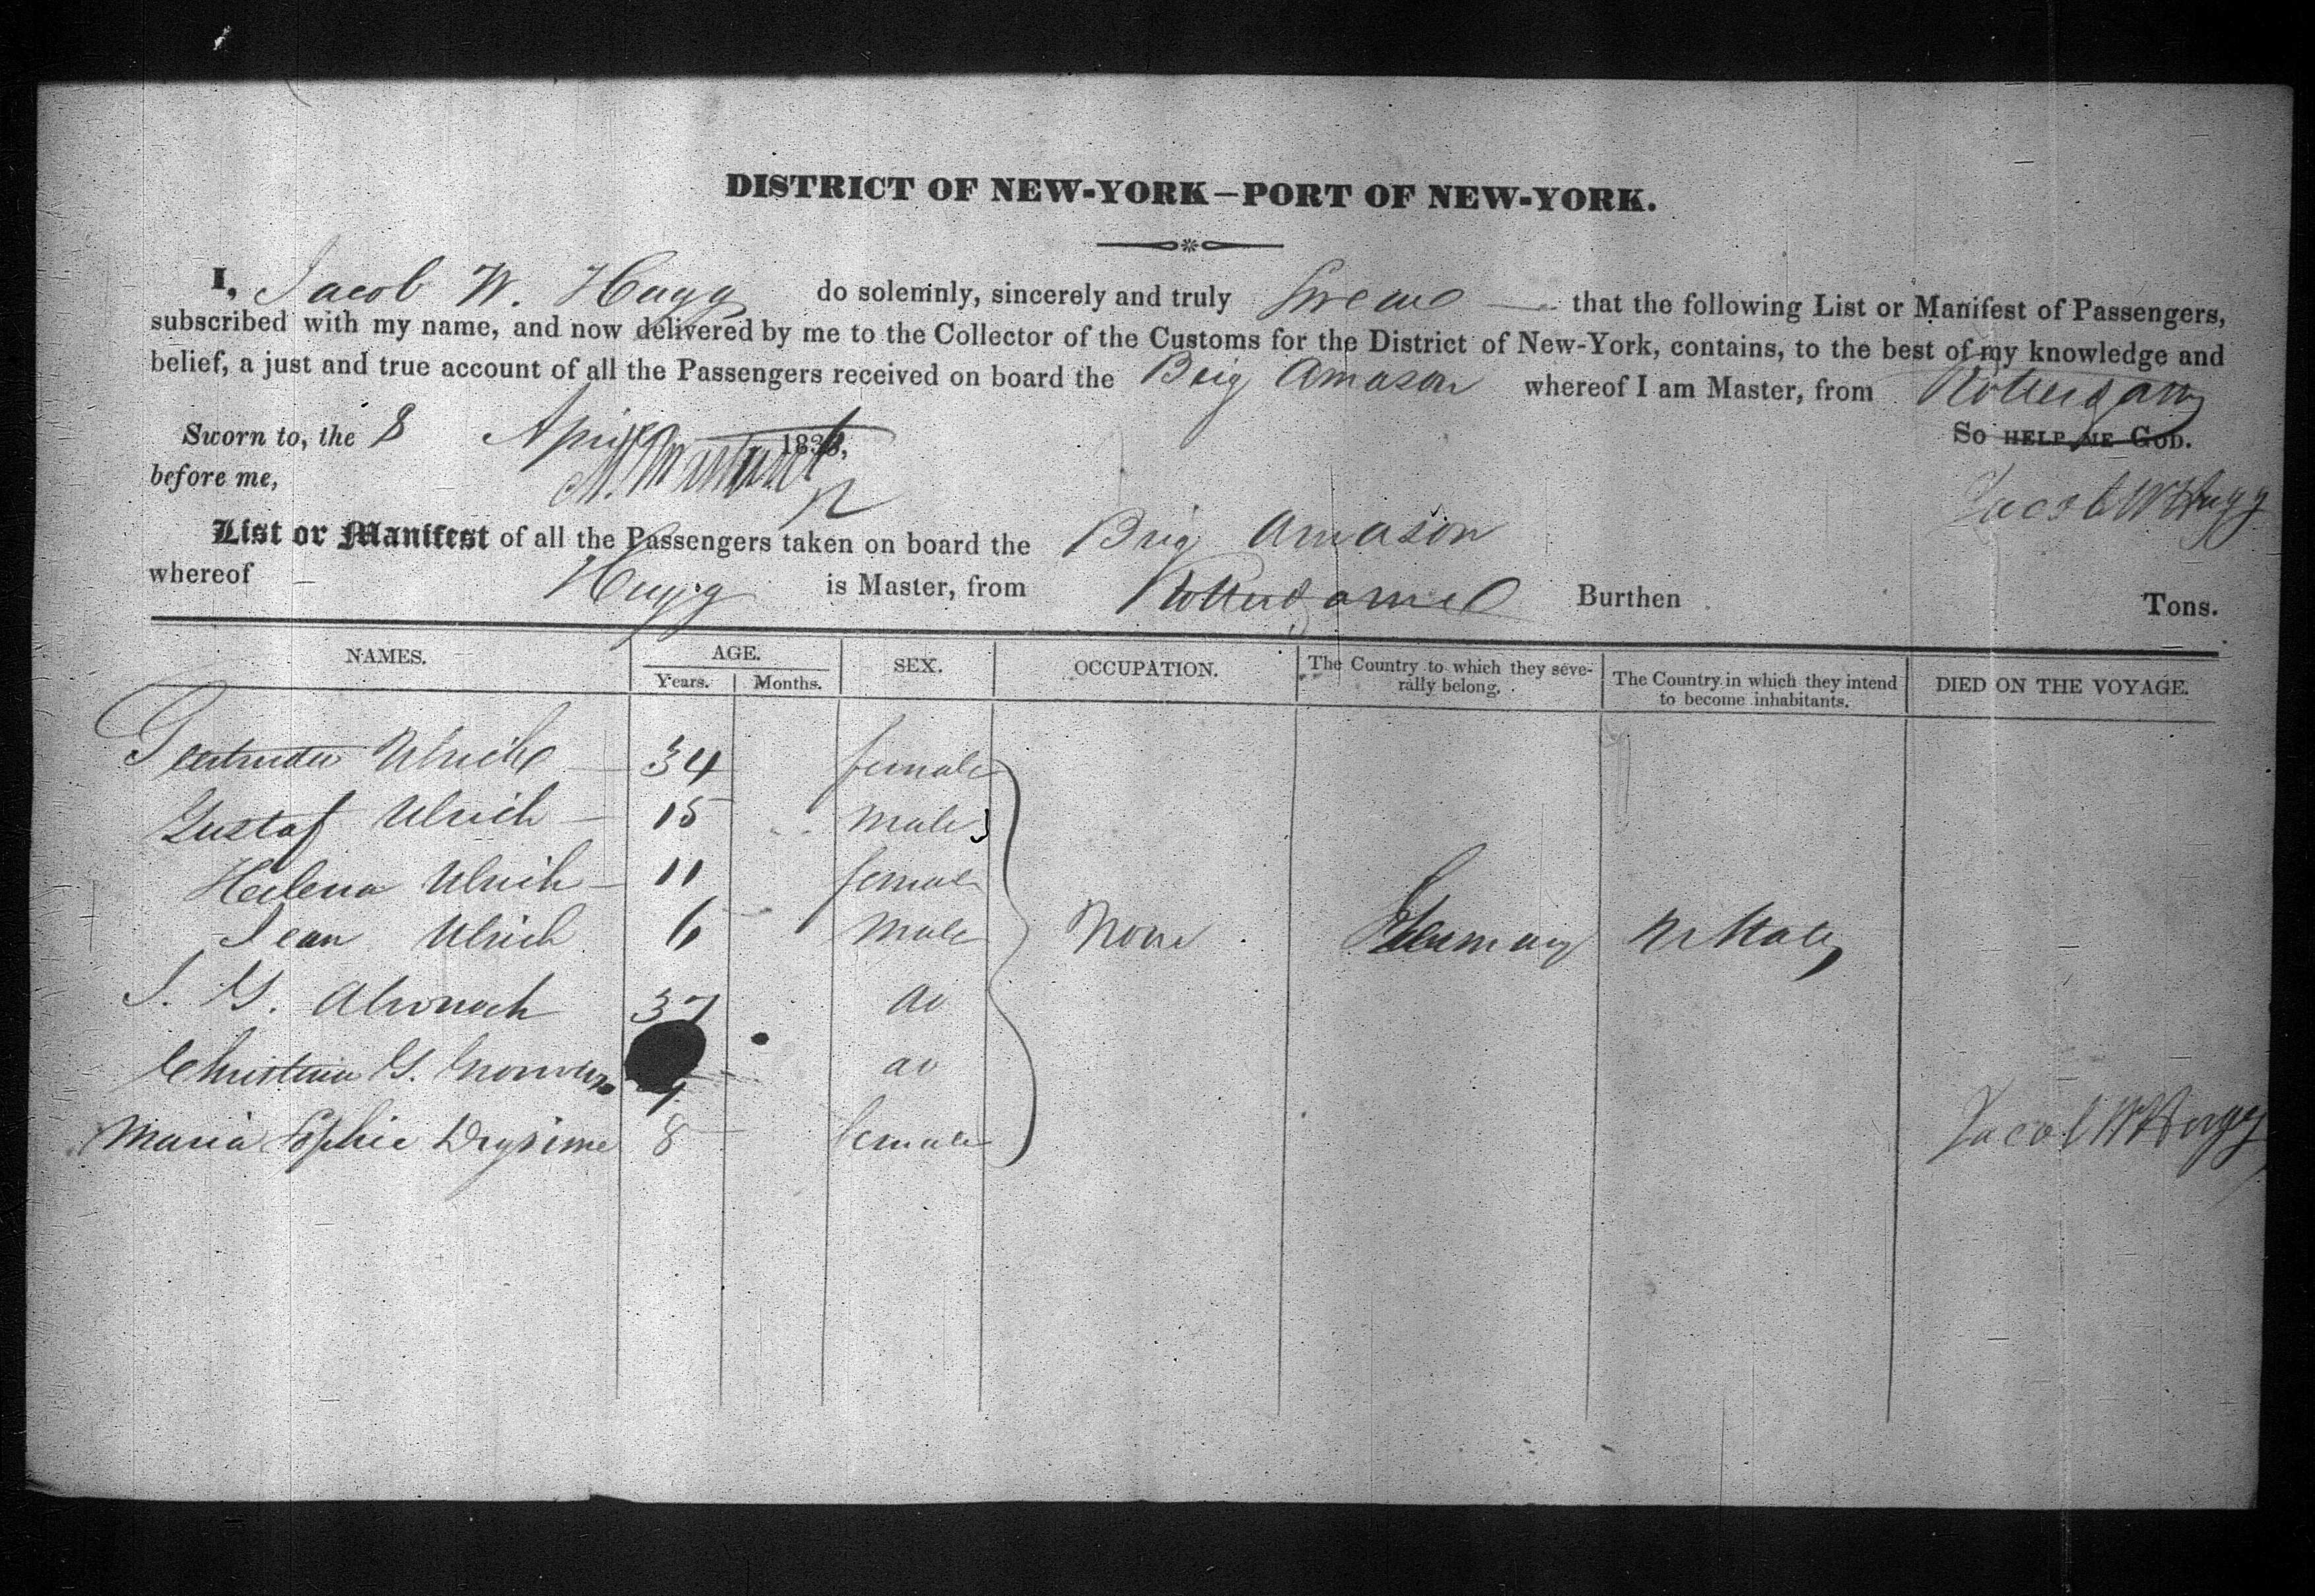 DISTRICT OF NEW-YORK—PORT OF NEW-YORK.
I, Jacob W. Hugg do solemnly, sincerely and truly Swear that the following List or Manifest of Passengers,
subscribed with my name, and now delivered by me to the Collector of the Customs for the District of New-York, contains, to the best of my knowledge and
belief, a just and true account of all the Passengers received on board the Brig Amason whereof I am Master, from Rotterdam
Sworn to, the 8 April 1836, So HELP ME GOD.
before me,
Jacob W Hugg
List or Manifest of all the Passengers taken on board the Brig Amason
whereof Hugg is Master, from Rotterdam Burthen Tons.
NAMES. AGE. SEX. OCCUPATION. The Country to which they severally belong. The Country in which they intend to become inhabitants. DIED ON THE VOYAGE.
Years. Months.
Ulrich 34 female
Gustaf Ulrich 15 male
Helena Ulrich 11 female
Jean Ulrich 6 male None Germany
J. G. 37 do
G. do
Maria Sophie 8 female
Jacob W Hugg